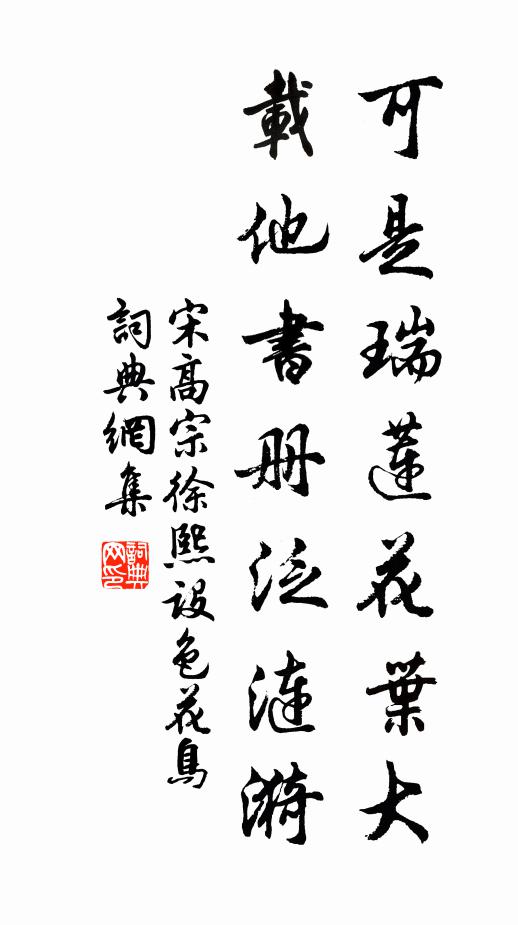 可是瑞蓮花葉大
載他書册泛漣漪
宋高宗徐熙設色花鳥
詞典網集
詞典網印